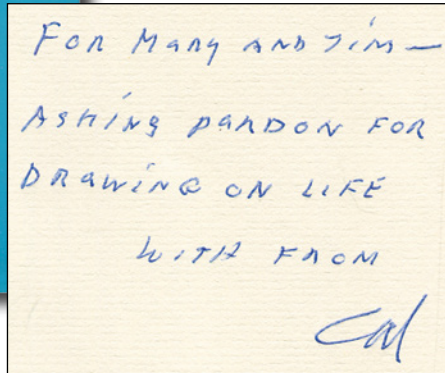 FOR MARY AND JIM—
ASKING PARDON FOR
DRAWING ON LIFE
WITH FROM
Cal